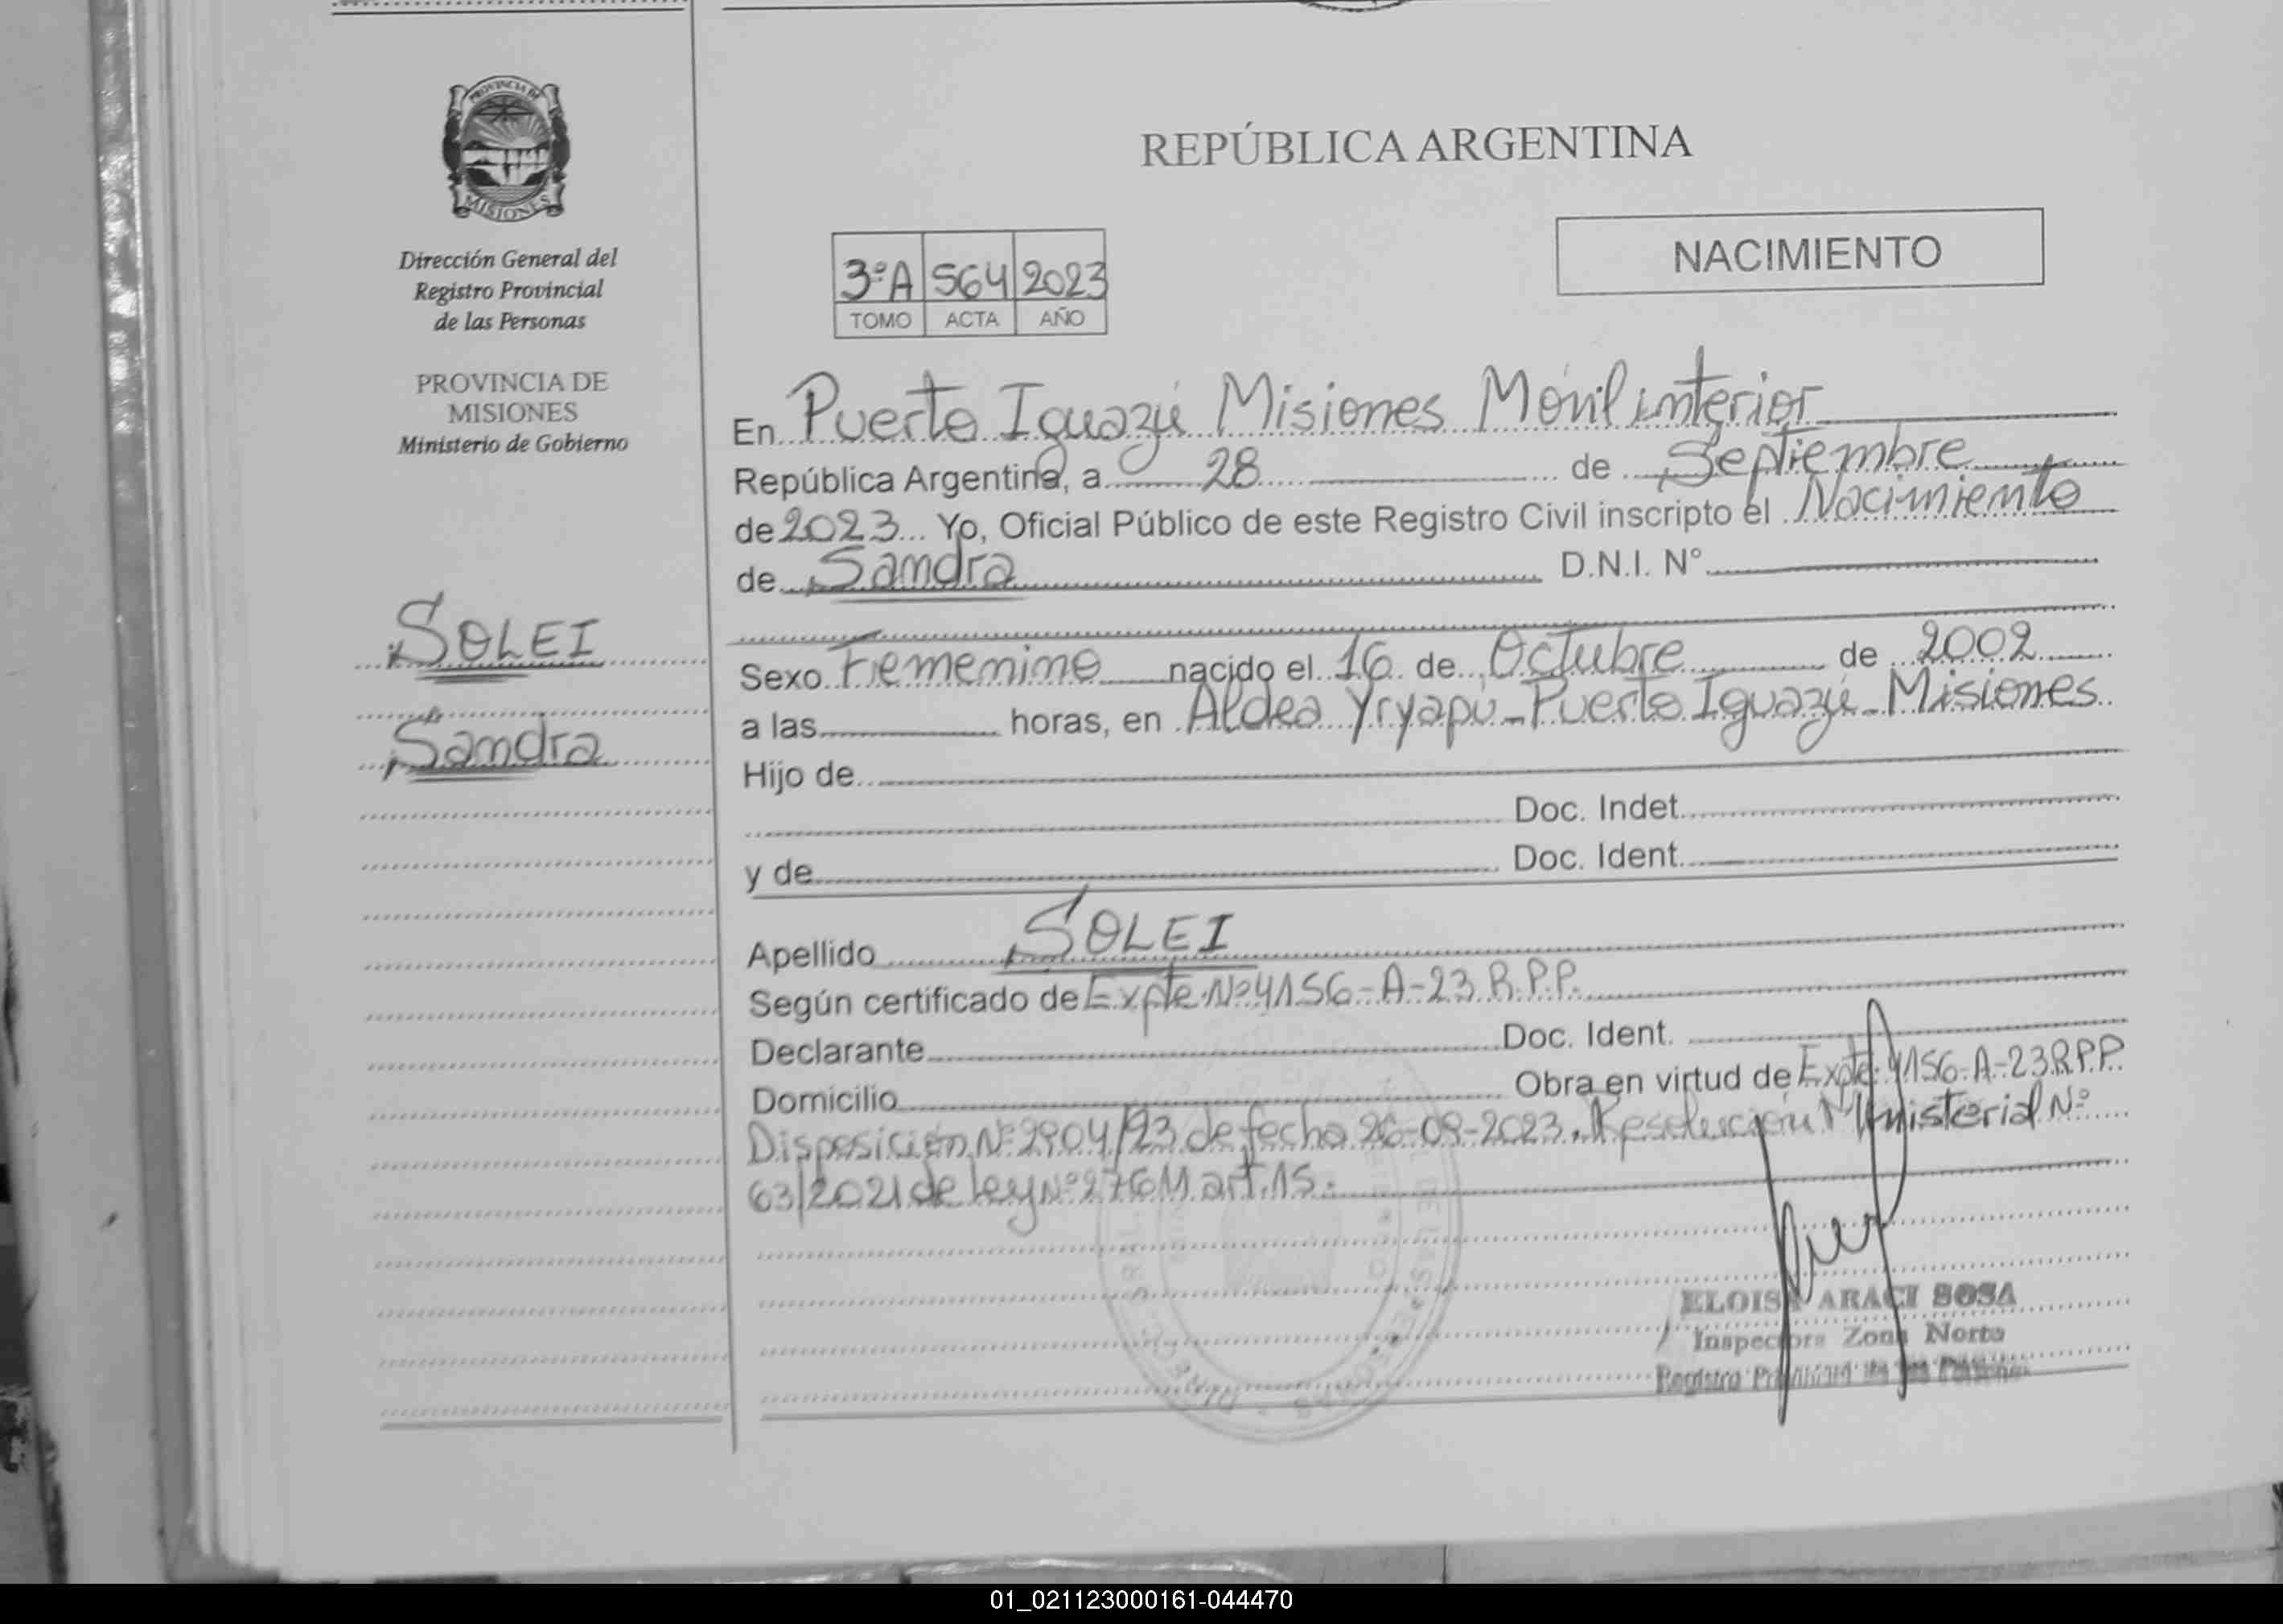 PROVINCIA DE
MISIONES
Dirección General del
Registro Provincial
de las Personas
PROVINCIA DE
MISIONES
Ministerio de Gobierno
SOLEI
Sandra
REPÚBLICA ARGENTINA
NACIMIENTO
3ºA 564 2023
TOMO ACTA AÑO
En Puerto Iguazú Misiones Móvil interior
República Argentina, a 28 de Septiembre
de 2023 Yo, Oficial Público de este Registro Civil inscripto el Nacimiento
de Sandra D.N.I. N°
Sexo Femenino nacido el 16 de Octubre de 2002
a las horas, en Aldea Yryapú - Puerto Iguazú - Misiones
Hijo de
Doc. Indet.
y de Doc. Ident.
Apellido SOLEI
Según certificado de Expte Nº 4156-A-23 R.P.P.
Declarante Doc. Ident.
Domicilio Obra en virtud de Expte. 4156-A-23 R.P.P.
Disposición Nº 2904/23 de fecha 26-09-2023. Resolución Ministerial Nº
63/2021 de ley Nº 276M art. 15.
ELOISA ARACI SOSA
Inspectora Zona Norte
Registro Provincial de las Personas
01_021123000161-044470